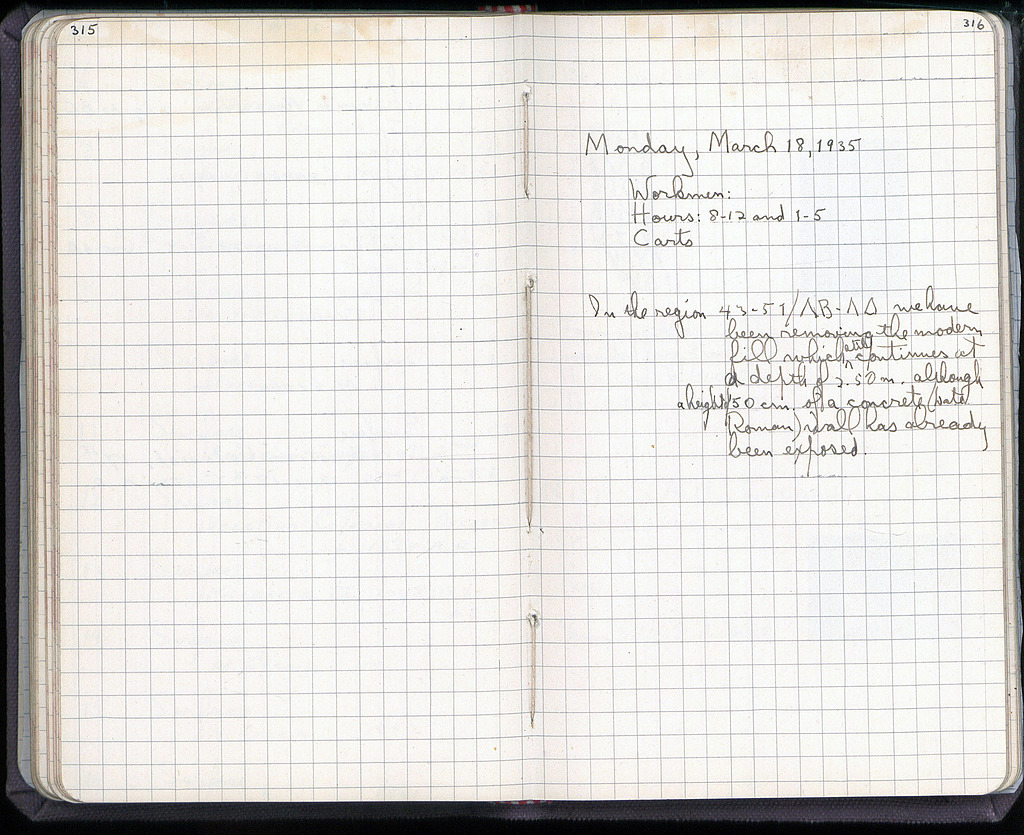 315
316
Monday, March 18, 1935
Workmen:
Hours: 8-12 and 1-5
Carts
In the region 43-51/ΛΒ-ΛΔ we have
been removing the modern
fill which still continues at
a depth of 2.50 m. although
a height of 50 cm. of a concrete (late
Roman) wall has already
been exposed.